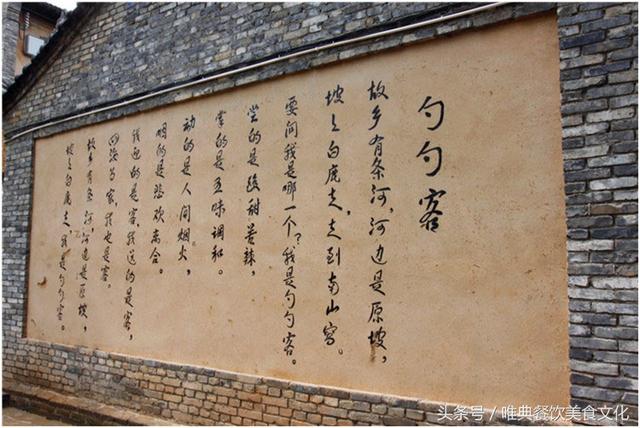 勺勺客
故乡有条河,河边是原坡,
坡上白鹿走,走到南山窝。
要问我是哪一个?我是勺勺客。
尝的是酸甜苦辣,
的是五味调和。
动的是人间烟火,
的是悲欢离合。
我迎的是客,我送的是客,
四海为家,我也是客。
故乡有条河,河边是原坡,
坡上白鹿走,我是勺勺客。
头条号／唯典餐饮美食文化